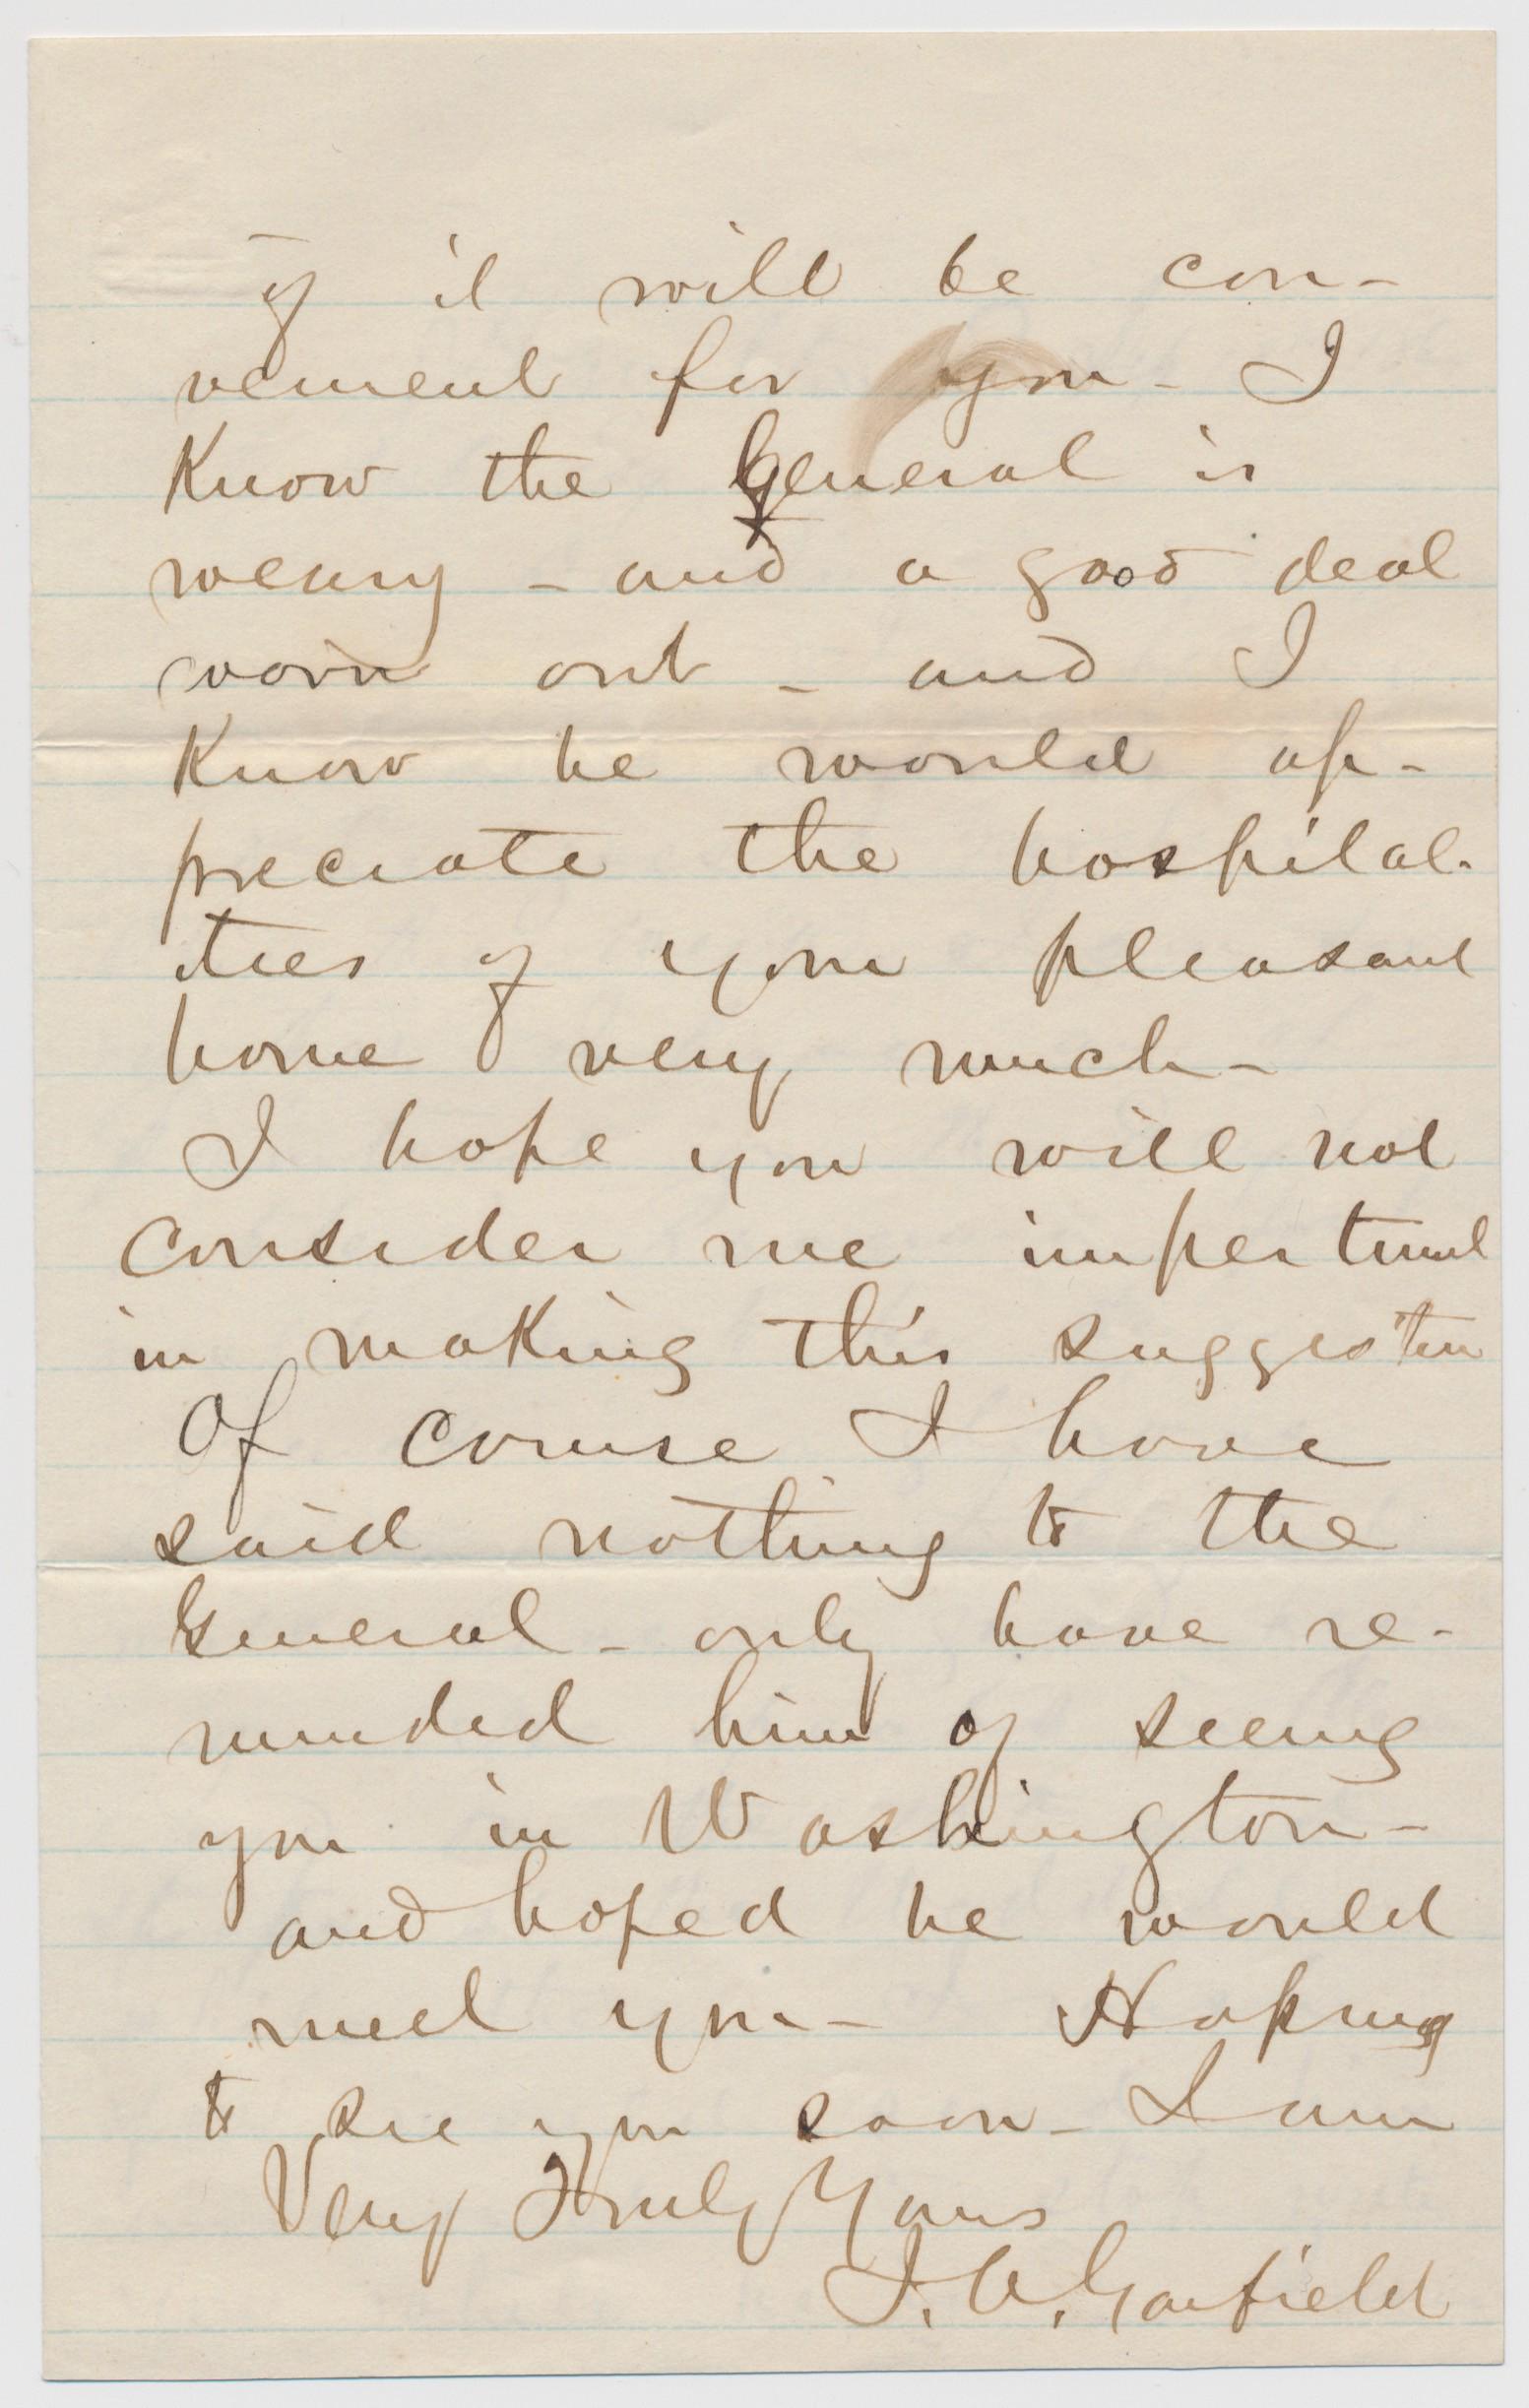 if it will be con-
venient for you - I
Know the General is
weary - and a good deal
worn out - and I
Know he would ap-
preciate the hospital-
ities of your pleasant
home very much -
I hope you will not
consider me impertinent
in making this suggestion
Of course I have
said nothing to the
General - only have re-
minded him of seeing
you in Washington -
and hoped he would
meet you - Hoping
to see you soon - I am
Very Truly Yours
I. W. Garfield